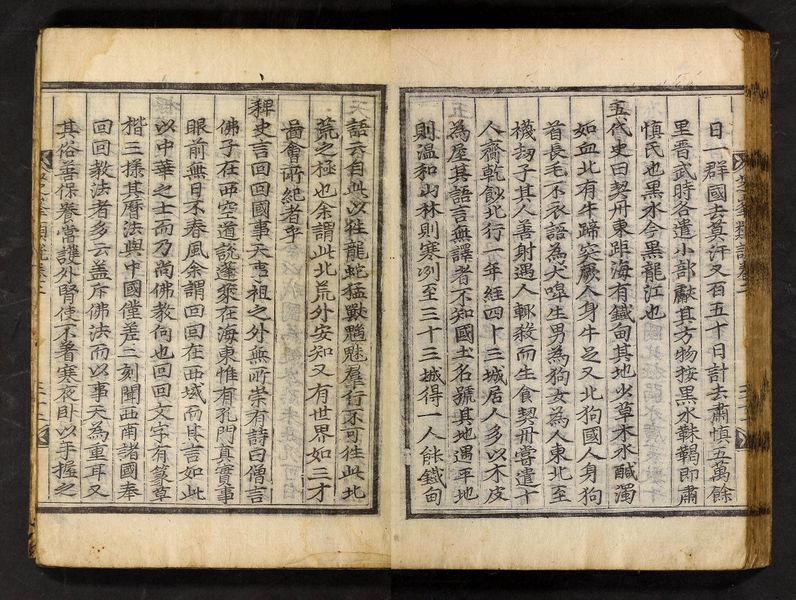 日一群國去莫汗又百五十日計去肅慎五萬餘
里晋武時各遣小部獻其方物按黑水靺鞨即肅
慎氏也黑水今黑龍江也
五代史曰契丹東距海有鐵甸其地少草木水鹹濁
如血北有牛蹄突厥人身牛足又北狗國人身狗
首長毛不衣語為犬嘷生男為狗女為人東北至
襪劫子其人善射遇人輒殺而生食契丹嘗遣十
人齎乾飯北行一年經四十三城居人多以木皮
為屋其語言無譯者不知國土名號其地遇平地
則温和山林則寒冽至三十三城得一人能鐵甸
語云自此以往龍蛇猛獸魑魅羣行不可往此北
荒之極也余謂此北荒外安知又有世界如三才
啚會所紀者乎
稗史言回回國事天惠祖之外無所崇有詩曰僧言
佛子在西空道說蓬萊在海東惟有孔門真實事
眼前無日不春風余謂回回在西域而其言如此
以中華之士而乃尚佛教何也回回文字有篆草
楷三樣其曆法與中國僅差三刻聞西南諸國奉
回回教法者多云盖斥佛法而以事天為重耳又
其俗善保養常護外腎使不著寒夜卧以手握之